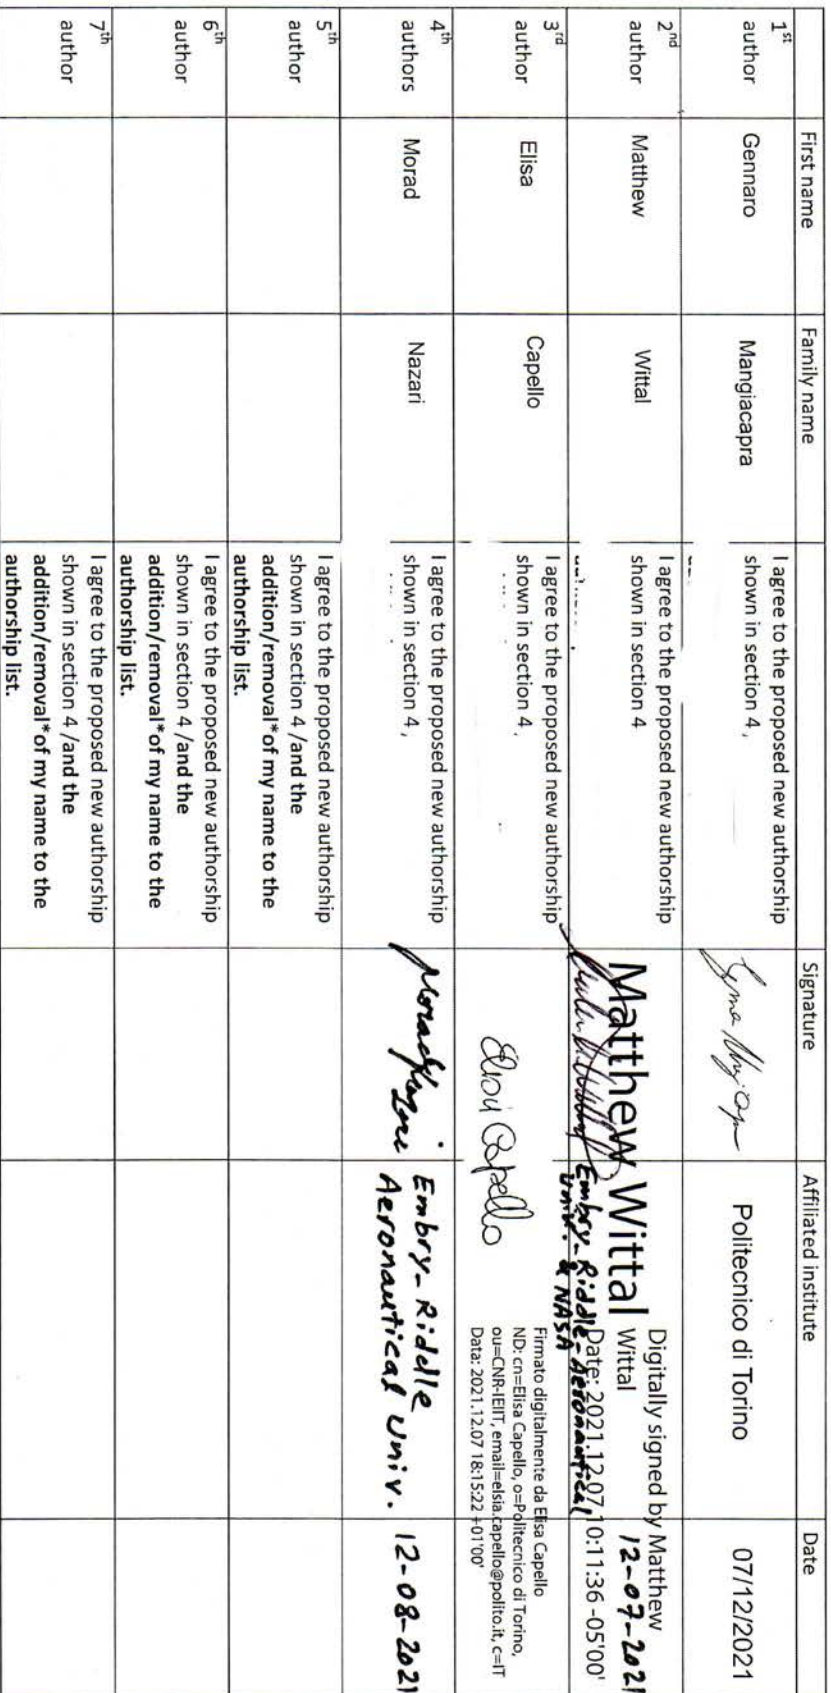 First name Family name Signature Affiliated institute Date
1st author Gennaro Mangiacapra I agree to the proposed new authorship
shown in section 4, Politecnico di Torino 07/12/2021
2nd author Matthew Wittal I agree to the proposed new authorship
shown in section 4
Matthew Wittal
Digitally signed by Matthew
Wittal
Date: 2021.12.07 10:11:36 -05'00'
Embry-Riddle Aeronautical
Univ. & NASA
12-07-2021
3rd author Elisa Capello I agree to the proposed new authorship
shown in section 4,
Elisa Capello
Firmato digitalmente da Elisa Capello
ND: cn=Elisa Capello, o=Politecnico di Torino,
ou=CNR-IEIIT, email=elsia.capello@polito.it, c=IT
Data: 2021.12.07 18:15:22 +01'00'
4th authors Morad Nazari I agree to the proposed new authorship
shown in section 4,
Morad Nazari
Embry-Riddle
Aeronautical Univ. 12-08-2021
5th author I agree to the proposed new authorship
shown in section 4 /and the
addition/removal*of my name to the
authorship list.
6th author I agree to the proposed new authorship
shown in section 4 /and the
addition/removal*of my name to the
authorship list.
7th author I agree to the proposed new authorship
shown in section 4 /and the
addition/removal*of my name to the
authorship list.